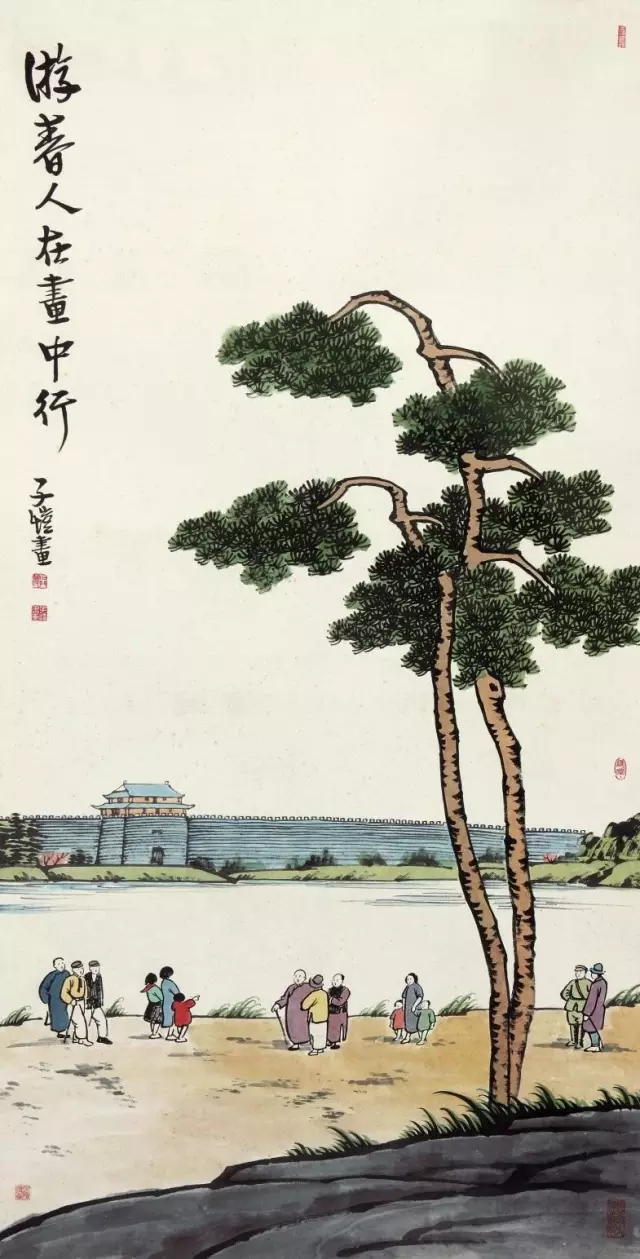 游春人在畫中行
子愷畫